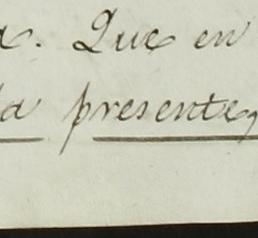 a. Que en
da presente,